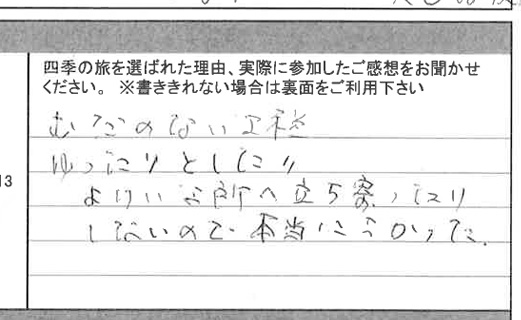 四季の旅を選ばれた理由、実際に参加したご感想をお聞かせ
ください。 ※書ききれない場合は裏面をご利用下さい
13
むだのない工程
ゆったりとしたり
よけいな所へ立ち寄ったり
しないので本当によかった。